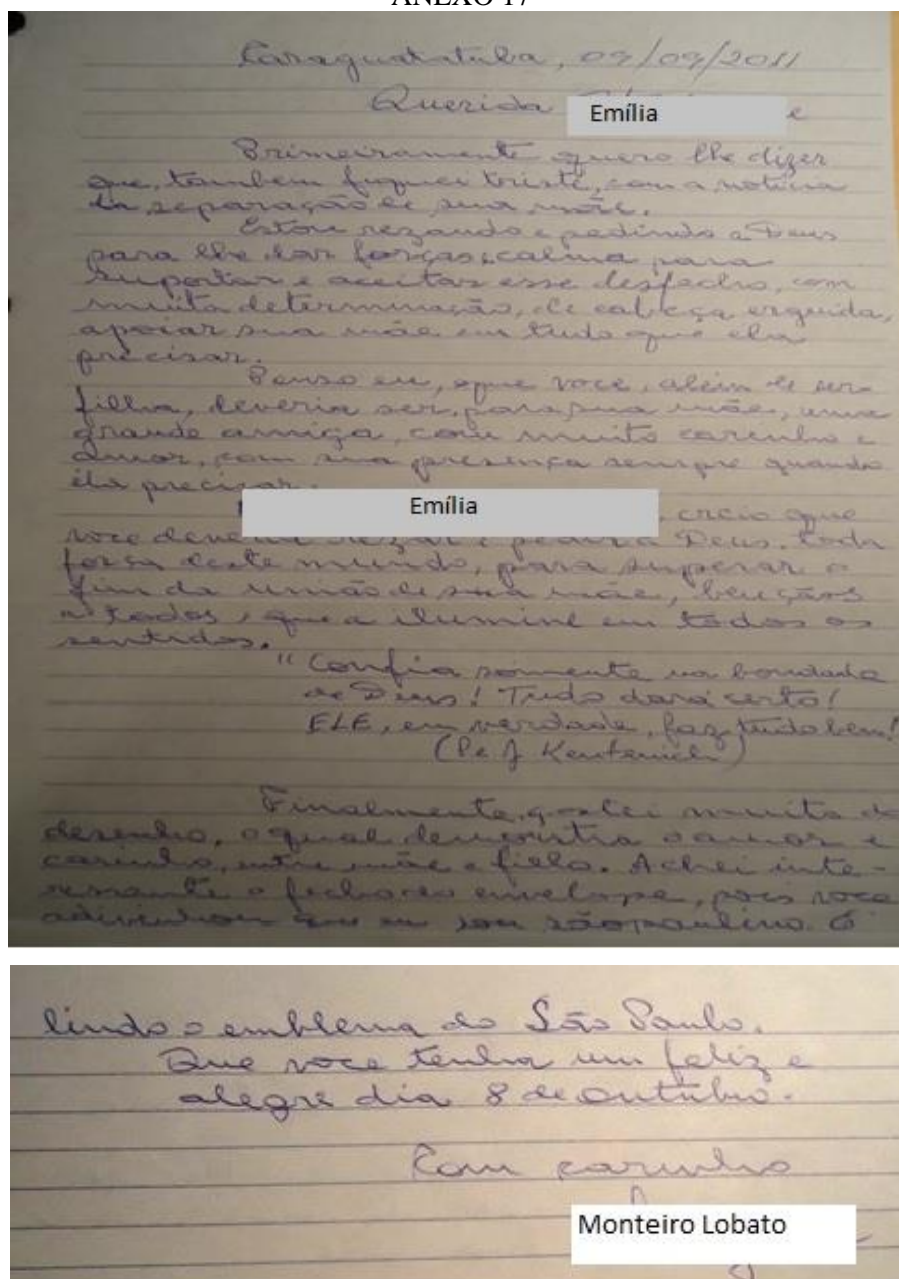 ANEXO 17
Caraguatatuba, 09/09/2011
Querida Emília
Primeiramente quero lhe dizer
que, tambem fiquei triste, com a notícia
da separação de sua mãe.
Estou rezando e pedindo a Deus
para lhe dar forças, calma para
suportar e aceitar esse desfecho, com
muita determinação, de cabeça erguida,
apoiar sua mãe em tudo que ela
precisar.
Penso eu, que voce, além de ser
filha, deveria ser, para sua mãe, uma
grande amiga, com muito carinho e
amor, com sua presença sempre quando
ela precisar.
Emília, creio que
voce deveria rezar e pedir a Deus, toda
força deste mundo, para superar o
fim da união de sua mãe, bençãos
a todos, que a ilumine em todos os
sentidos.
"Confia somente na bondade
de Deus! Tudo dará certo!
ELE, em verdade, faz tudo bem!
(Pe J Kentenich)
Finalmente, gostei muito do
desenho, o qual demonstra o amor e
carinho, entre mãe e filho. Achei inte-
ressante o fecho do envelope, pois voce
adivinhou que eu sou sãopaulino. É
lindo o emblema do São Paulo.
Que voce tenha um feliz e
alegre dia 8 de outubro.
Com carinho
Monteiro Lobato